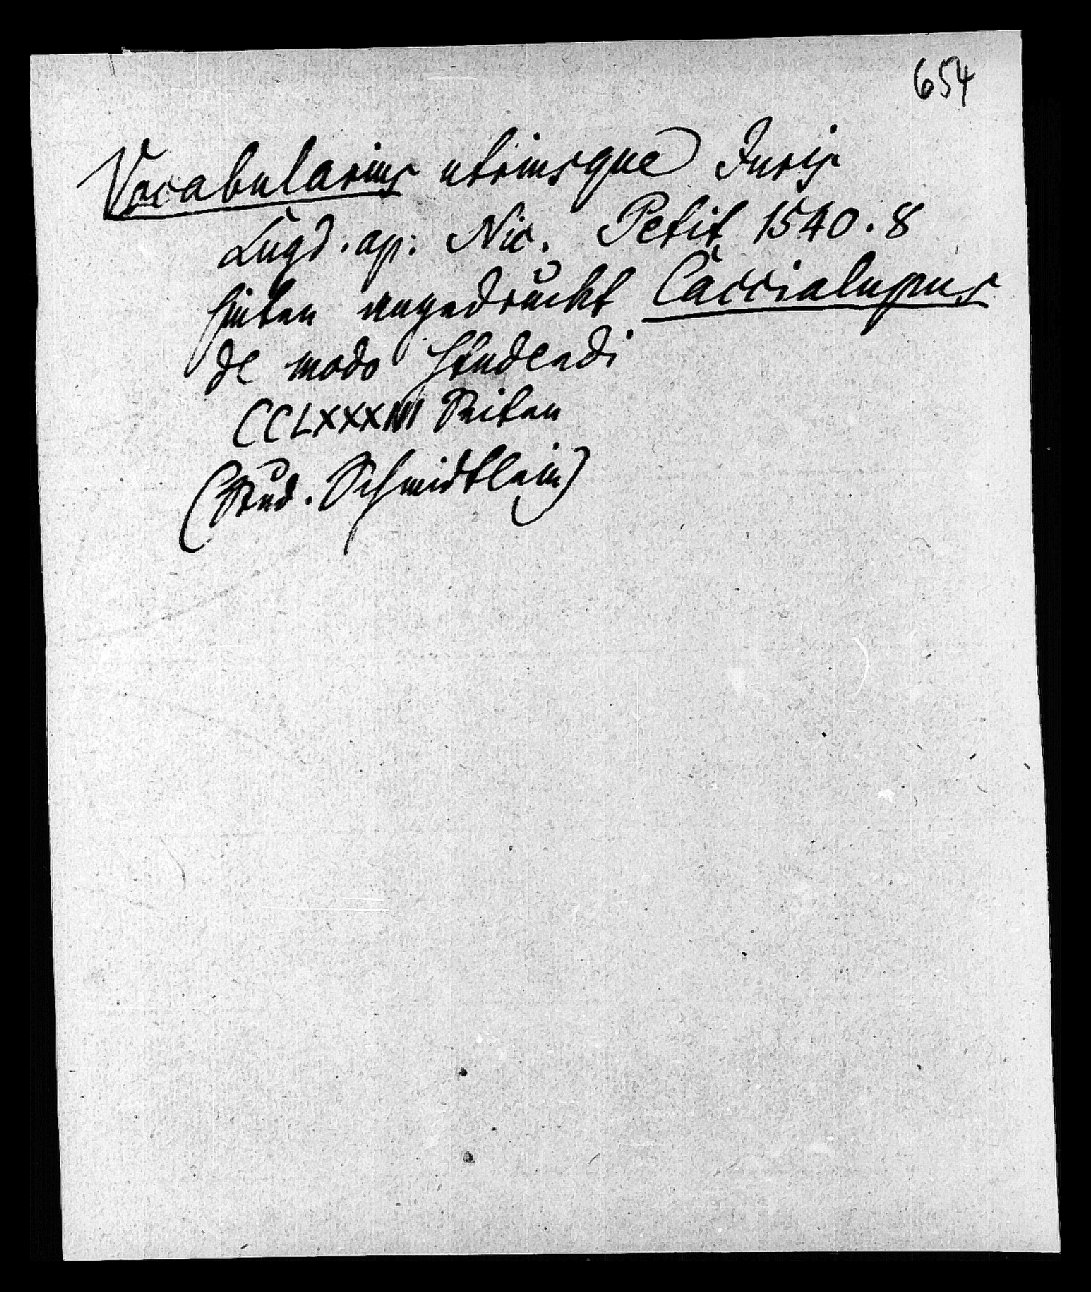 654
Vocabularius utriusque Juris
Lugd. ap. Nic. Petit 1540. 8
hinten angedruckt Caccialupus
de modo studendi
CCLXXXIIII Seiten
(Stud. Schmidtlein)